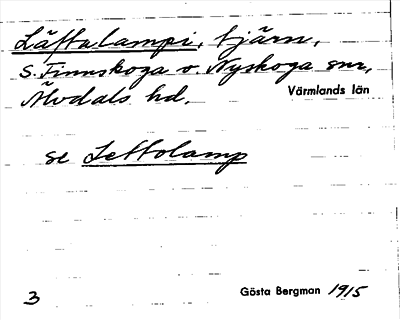 Läftalampi, tjärn,
S. Finnskoga o Nyskoga snr,
Älvdals hd. Värmlands län
se Leftolamp
3 Gösta Bergman 1915